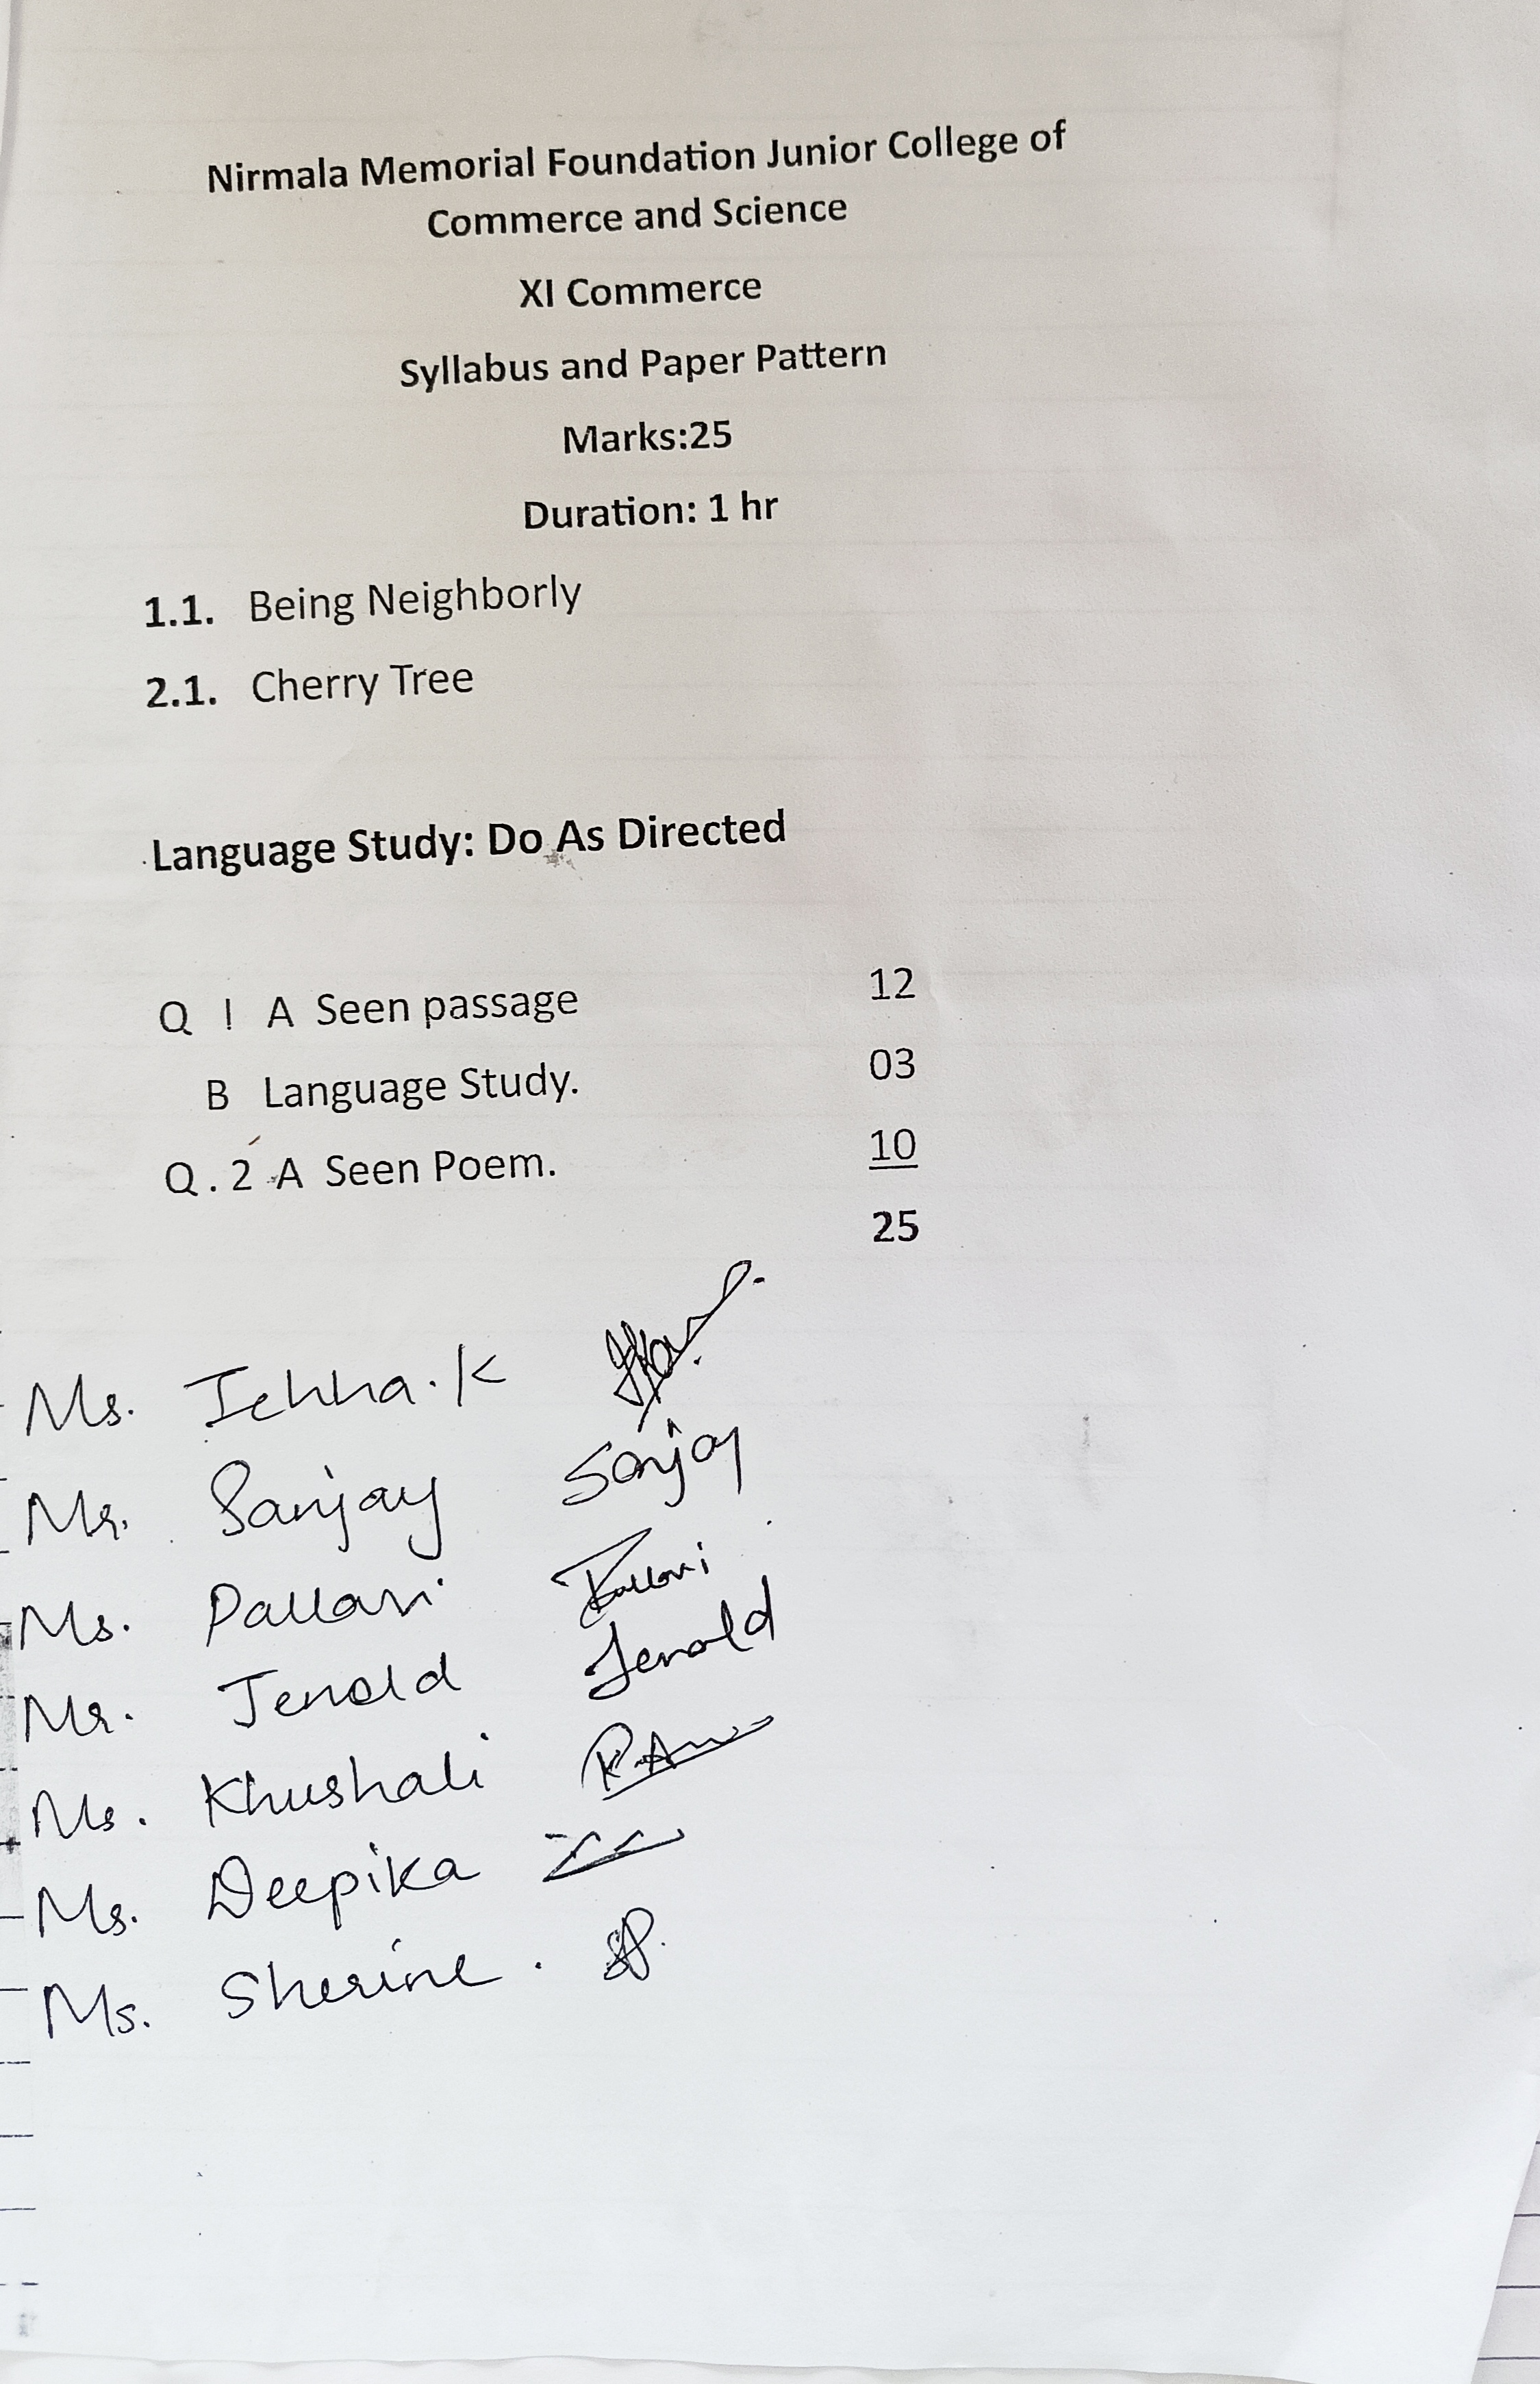 Nirmala Memorial Foundation Junior College of
Commerce and Science
XI Commerce
Syllabus and Paper Pattern
Marks:25
Duration: 1 hr
1.1. Being Neighborly
2.1. Cherry Tree
Language Study: Do As Directed
Q ! A Seen passage 12
B Language Study. 03
Q.2 A Seen Poem. 10
25
Ms. Ichha.K
Mr. Sanjay Sanjay
Ms. Pallavi Pallavi
Mr. Jenold Jenold
Ms. Khushali
Ms. Deepika
Ms. Sherine.